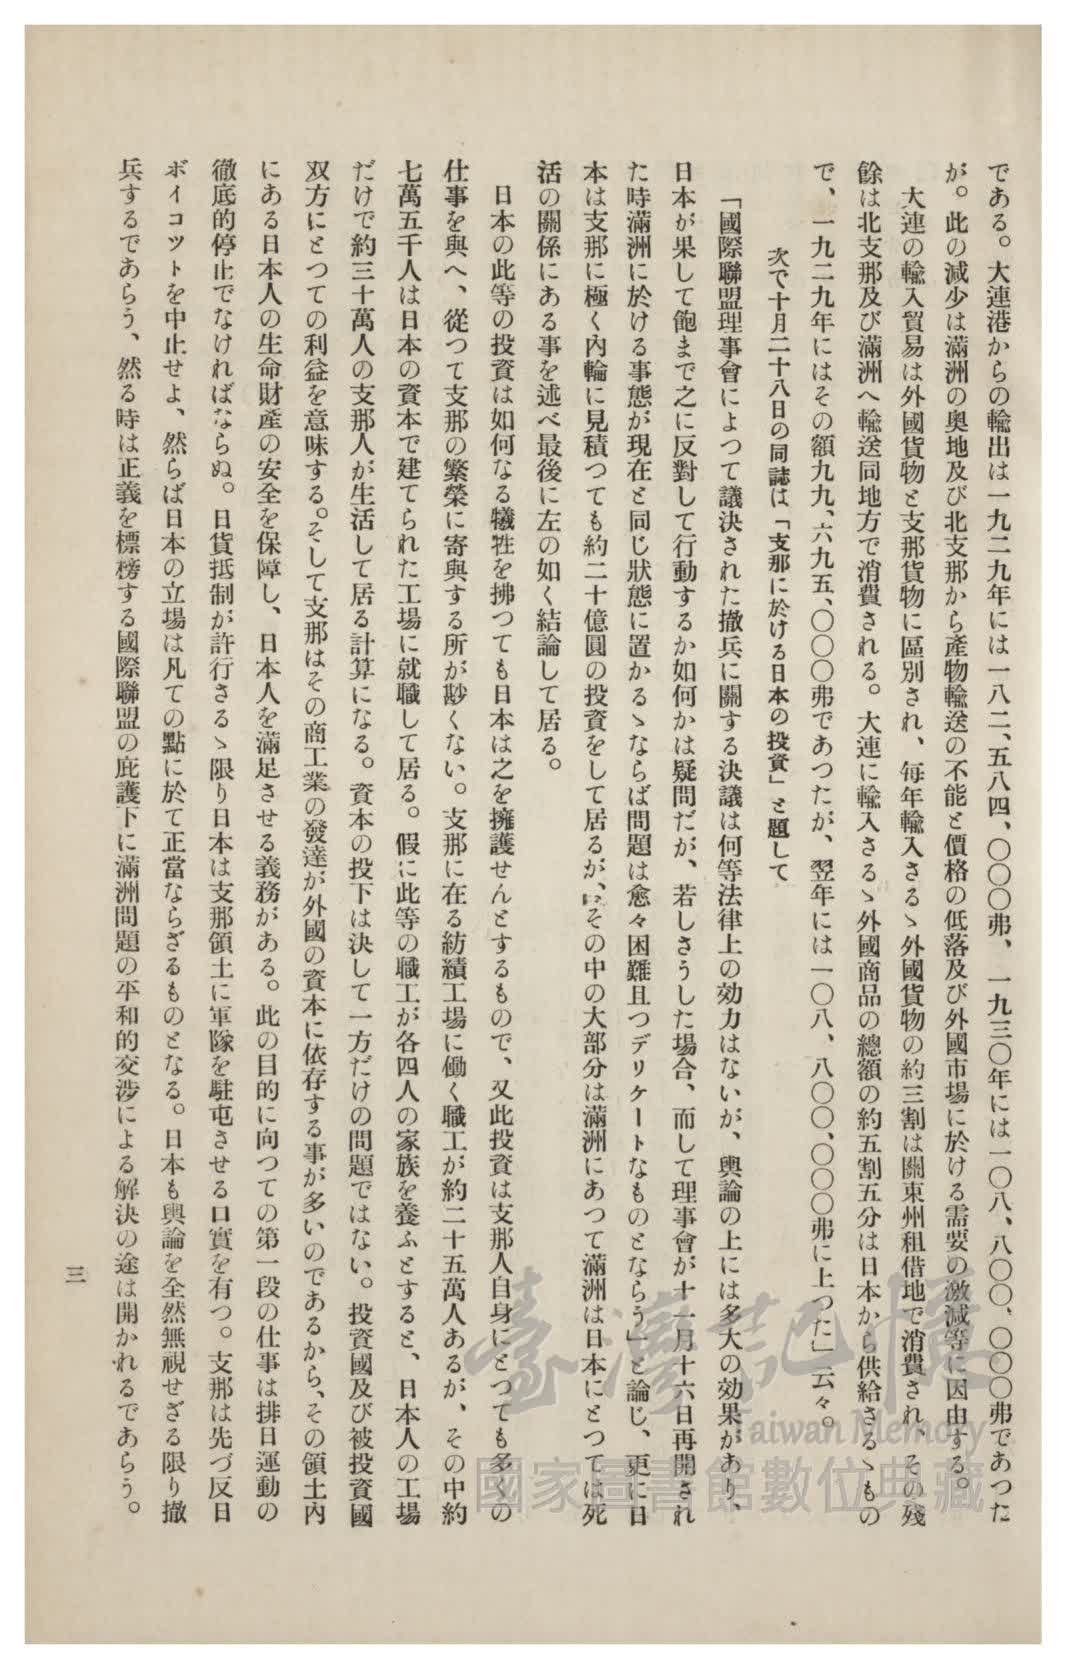 である。大連港からの輸出は一九二九年には一八二、五八四、〇〇〇弗、一九三〇年には一〇八、八〇〇、〇〇〇弗であつた
が。此の減少は滿洲の奧地及び北支那から產物輸送の不能と價格の低落及び外國市場に於ける需要の激減等に因由する。
大連の輸入貿易は外國貨物と支那貨物に區別され、每年輸入さるゝ外國貨物の約三割は關東州租借地で消費され、その殘
餘は北支那及び滿洲へ輸送同地方で消費される。大連に輸入さるゝ外國商品の總額の約五割五分は日本から供給さるゝもの
で、一九二九年にはその額九九、六九五、〇〇〇弗であつたが、翌年には一〇八、八〇〇、〇〇〇弗に上つた」云々。
次で十月二十八日の同誌は「支那に於ける日本の投資」と題して
「國際聯盟理事會によつて議決された撤兵に關する決議は何等法律上の効力はないが、輿論の上には多大の効果があり、
日本が果して飽まで之に反對して行動するか如何かは疑問だが、若しさうした場合、而して理事會が十一月十六日再開され
た時滿洲に於ける事態が現在と同じ狀態に置かるゝならば問題は愈々困難且つデリケートなものとならう」と論じ、更に日
本は支那に極く內輪に見積つても約二十億圓の投資をして居るが、その中の大部分は滿洲にあつて滿洲は日本にとつては死
活の關係にある事を述べ最後に左の如く結論して居る。
日本の此等の投資は如何なる犧牲を拂つても日本は之を擁護せんとするもので、又此投資は支那人自身にとつても多くの
仕事を與へ、從つて支那の繁榮に寄與する所が尠くない。支那に在る紡績工場に働く職工が約二十五萬人あるが、その中約
七萬五千人は日本の資本で建てられた工場に就職して居る。假に此等の職工が各四人の家族を養ふとすると、日本人の工場
だけで約三十萬人の支那人が生活して居る計算になる。資本の投下は決して一方だけの問題ではない。投資國及び被投資國
双方にとつての利益を意味する。そして支那はその商工業の發達が外國の資本に依存する事が多いのであるから、その領土內
にある日本人の生命財產の安全を保障し、日本人を滿足させる義務がある。此の目的に向つての第一段の仕事は排日運動の
徹底的停止でなければならぬ。日貨抵制が許行さるゝ限り日本は支那領土に軍隊を駐屯させる口實を有つ。支那は先づ反日
ボイコツトを中止せよ、然らば日本の立場は凡ての點に於て正當ならざるものとなる。日本も輿論を全然無視せざる限り撤
兵するであらう、然る時は正義を標榜する國際聯盟の庇護下に滿洲問題の平和的交涉による解決の途は開かれるであらう。
三
臺灣記憶
Taiwan Memory
國家圖書館數位典藏